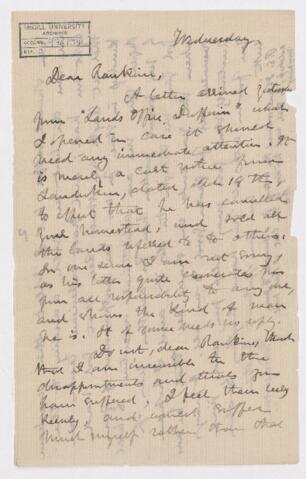 McGILL UNIVERSITY
ARCHIVES
ACC. NO.
REF.
Wednesday
Dear Rankine,
A letter arrived yesterday
from "Lands Office, Dauphin" which
I opened in case it should
need any immediate attention. It
is merely a curt notice from
dated 19th,
to effect that he has cancelled
your homestead, and sold all
the lands to others.
In one sense I am not sorry,
as his letter quite you
from all responsibility to any one,
and shows the kind of man
he is. It of course needs no reply.
Do not, dear Rankine, think
that I am insensible to the
disappointments and trials you
have suffered. I feel them very
keenly, and would suffer
much myself rather than that